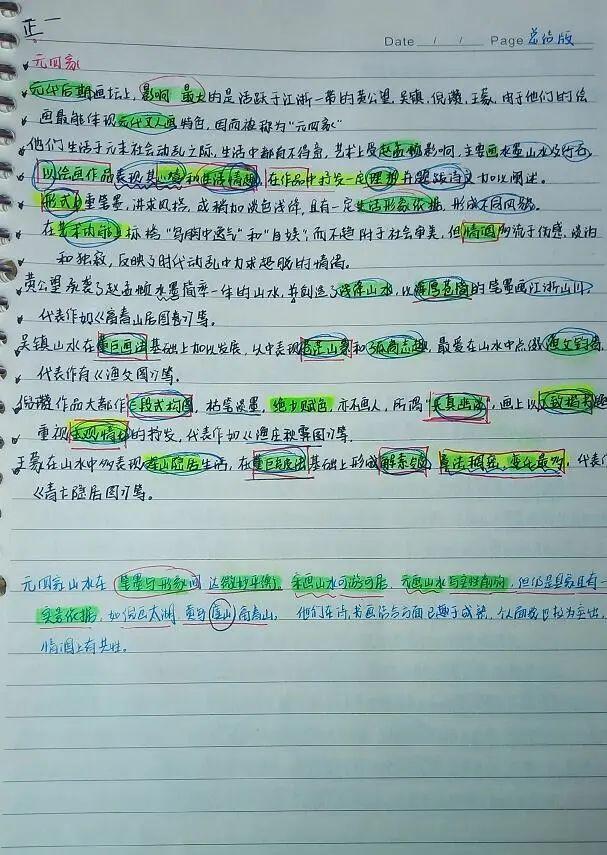 正一
Date / / Page 总结版
元四家
元代后期画坛上,影响最大的是活跃于江浙一带的黄公望、吴镇、倪瓒、王蒙,由于他们的绘
画最能体现元代文人画特色,因而被称为“元四家”
他们生活于元末社会动乱之际,生活中都有不得意,艺术上受赵孟頫影响,主要画水墨山水及竹石
以绘画作品表现其心境和生活情趣,在作品中抒发一定理想并题跋诗文加以阐述。
形式上重笔墨,讲求风格,或稍加淡色浅绛,且有一定生活形象依据,形成不同风貌。
在艺术内容上标榜“写胸中逸气”和“自娱”,而不趋附于社会审美,但情调流于伤感、淡泊
和孤寂,反映了时代动乱中力求超脱的情绪。
黄公望承袭了赵孟頫水墨简率一体的山水,并创造了浅绛山水,以浑厚苍简的笔墨画江浙山川,
代表作如《富春山居图卷》等。
吴镇山水在董巨画法基础上加以发展,以中表现和孤高志趣,最爱在山水中点缀渔父钓隐,
代表作有《渔父图》等。
倪瓒作品大都作三段式构图,枯笔淡墨,绝少赋色,亦不画人,所谓“天真幽淡”,画上以
重视主观情绪的抒发,代表作如《渔庄秋霁图》等。
王蒙在山水中多表现深山隐居生活,在董巨皴法基础上形成解索皴,章法稠密,变化最多,代表作
《青卞隐居图》等。
元四家山水在笔墨与形象间达微妙平衡,宋画山水可游可居,元画山水与实地有别,但仍是具象且有一
实景依据,如倪画太湖,黄写虞山、富春山,他们在诗书画结合方面已趋于成熟,个人面貌也较为突出,
情调上有共性。